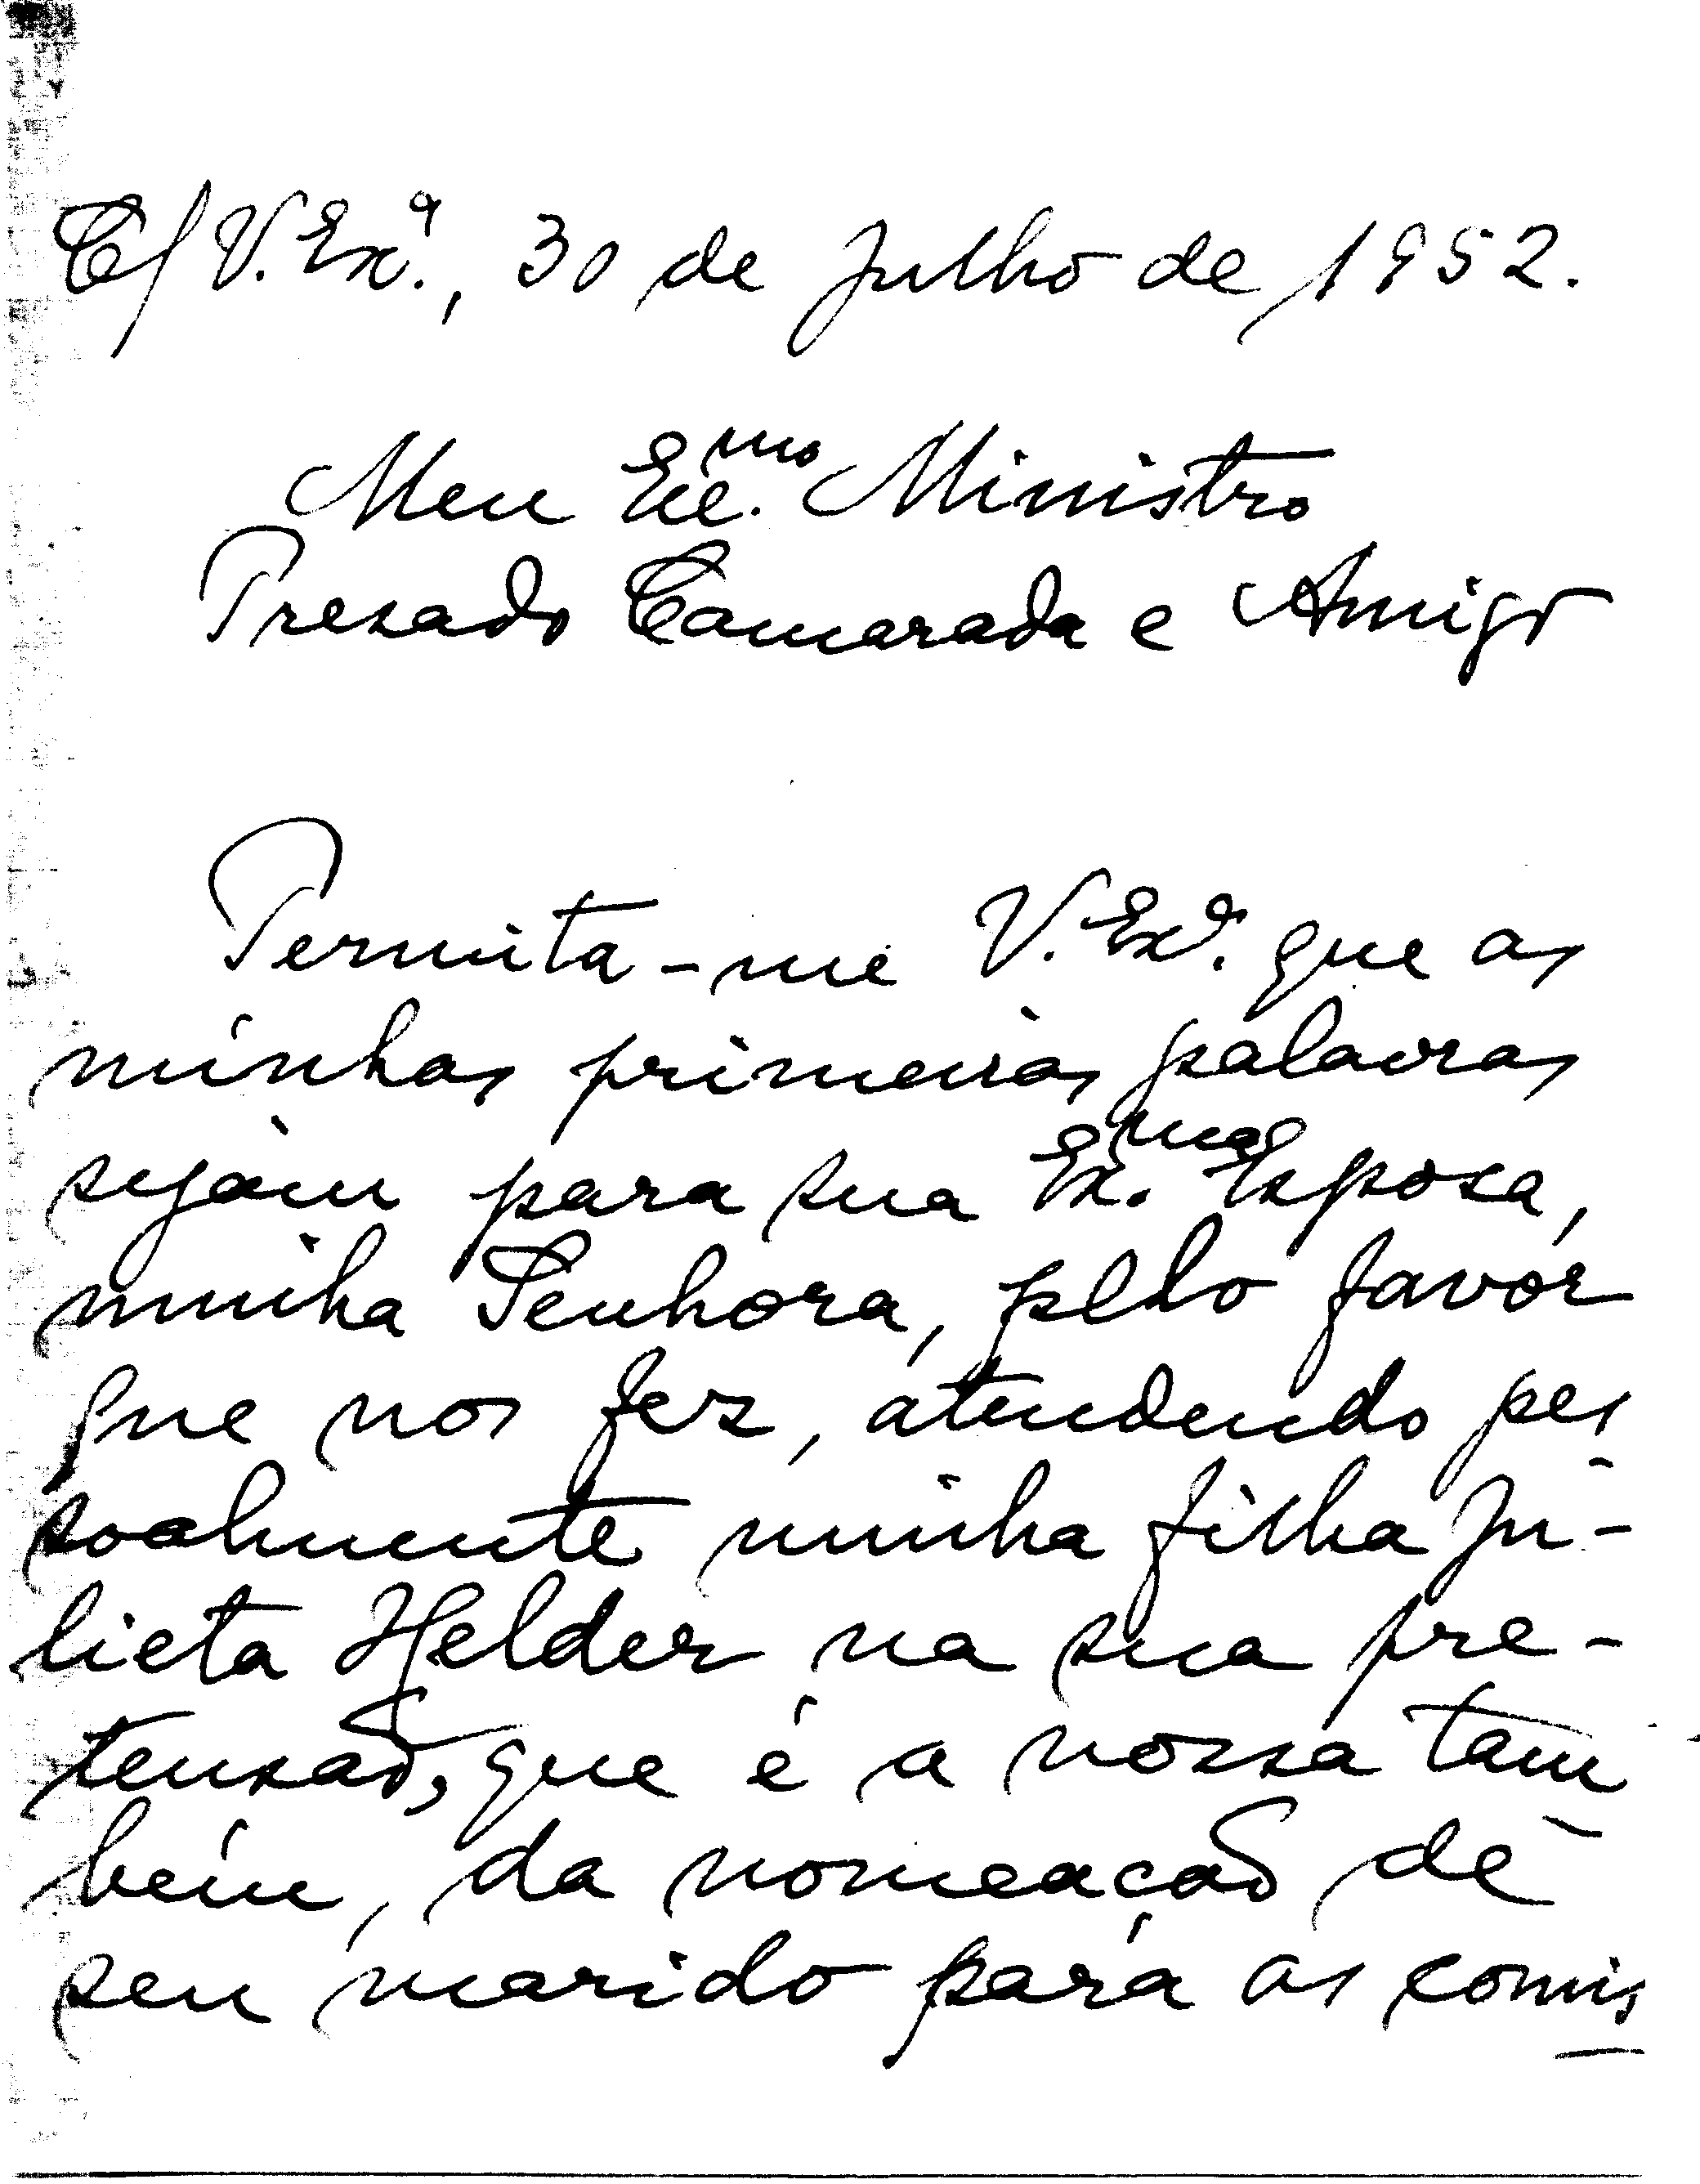 C/ V. Exª., 30 de Julho de 1952.
Meu Exe.mo Ministro
Presado Camarada e Amigo
Permita-me V. Exª. que as
minhas primeiras palavras
sejam para sua Ex.ma Esposa,
minha Senhora, pelo favor
que nos fez, atendendo pes
soalmente minha filha Ju-
lieta Helder na sua pre-
tensão, que é a nossa tam
bém, da nomeação de
seu marido para as comis